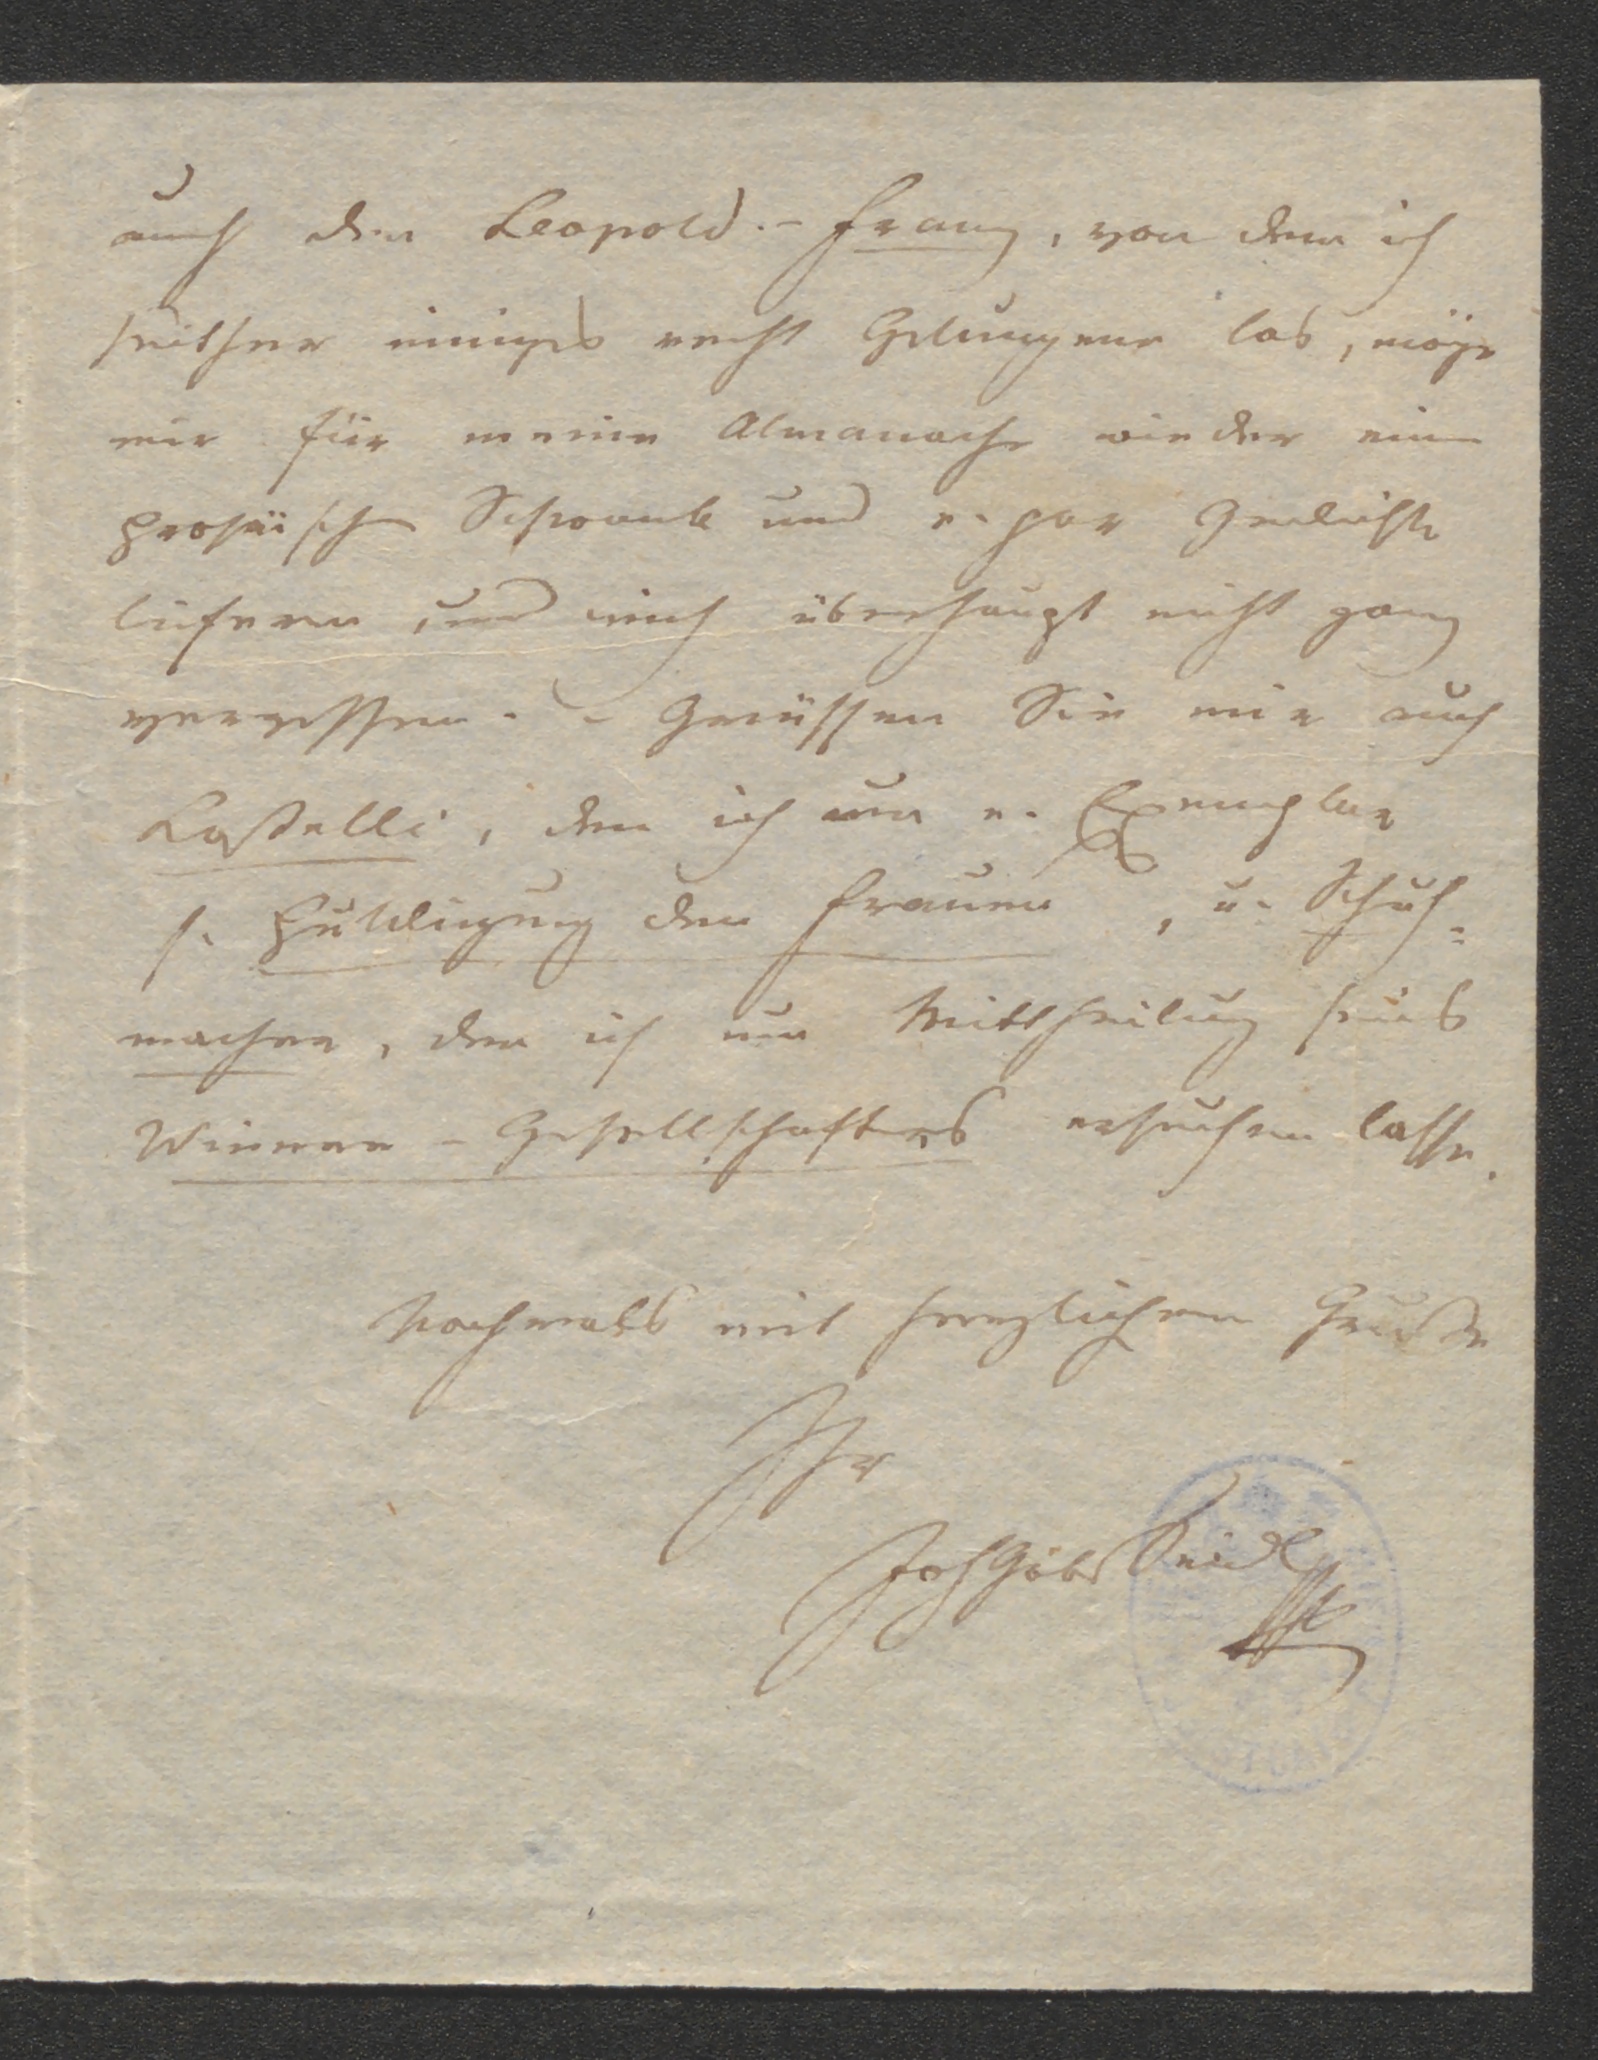 auch den Leopold.-Franz, von dem ich
seither einiges recht Gelungene las, möge
mir für meine Almanache wieder eine
prosaische Schwank und e. par Gedichte
liefern, und mich überhaupt nicht ganz
vergessen. – Grüssen Sie mir auch
Kastelli, den ich um e. Exemplar
s. Huldigung den Frauen, u. Schuh=
macher, den ich um Mittheilung seines
Wiener-Gesellschafters ersuchen lasse.
Nochmals mit herzlichem Gruße
Ihr
Joh Gab Seidl